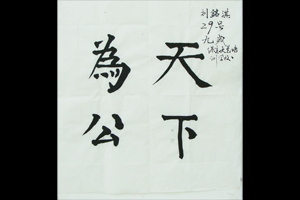 天下
為公
刘錦淇
29号
九歲